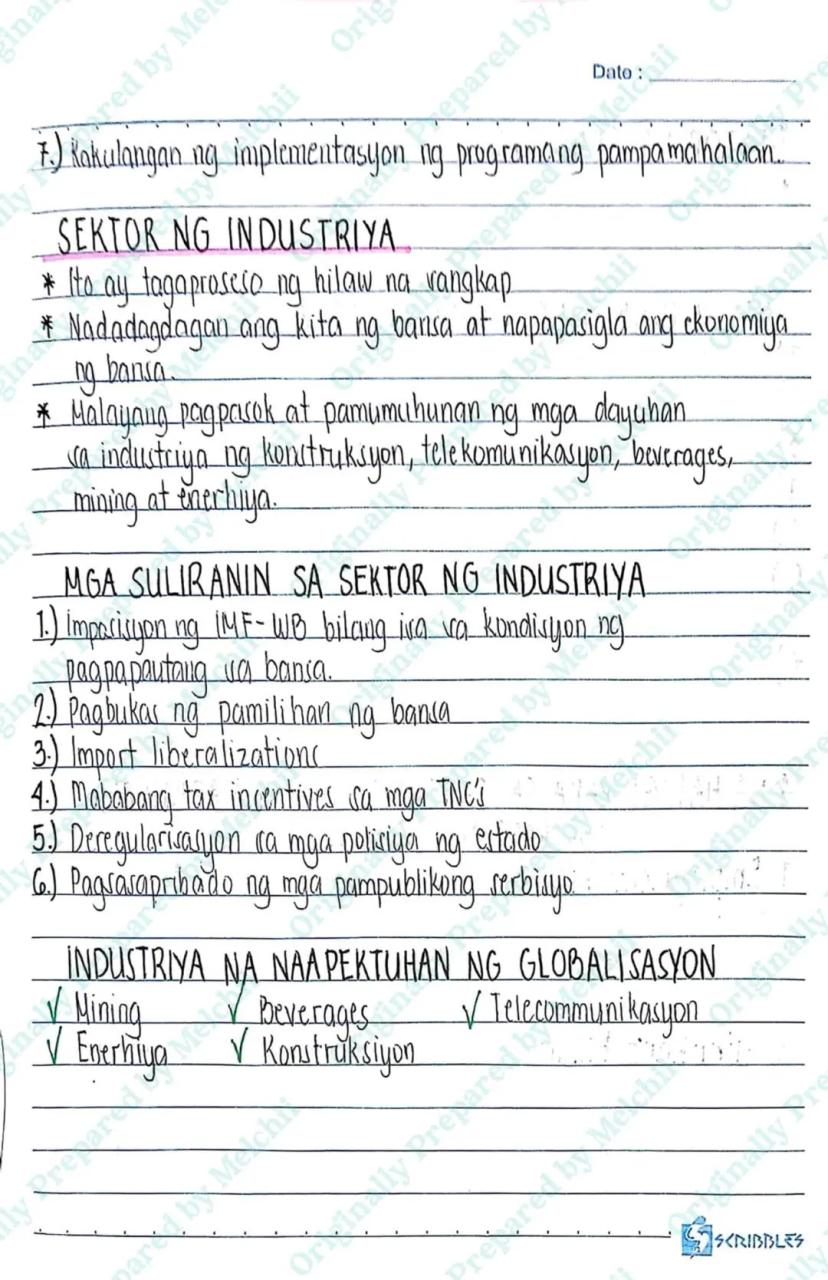 Date :
7.) Kakulangan ng implementasyon ng programang pampamahalaan.
SEKTOR NG INDUSTRIYA
* Ito ay tagaproseso ng hilaw na sangkap
* Nadadagdagan ang kita ng bansa at napapasigla ang ekonomiya
ng bansa.
* Malayang pagpasok at pamumuhunan ng mga dayuhan
sa industriya ng konstruksyon, telekomunikasyon, beverages,
mining at enerhiya.
MGA SULIRANIN SA SEKTOR NG INDUSTRIYA
1.) Imposisyon ng IMF-WB bilang isa sa kondisyon ng
pagpapautang sa bansa.
2.) Pagbukas ng pamilihan ng bansa
3.) Import liberalizations
4.) Mababang tax incentives sa mga TNC's
5.) Deregularisasyon sa mga polisiya ng estado
6.) Pagsasapribado ng mga pampublikong serbisyo
INDUSTRIYA NA NAAPEKTUHAN NG GLOBALISASYON
✓ Mining ✓ Beverages ✓ Telecommunikasyon
✓ Enerhiya ✓ Konstruksiyon
SCRIBBLES
Originally Prepared by Melchii